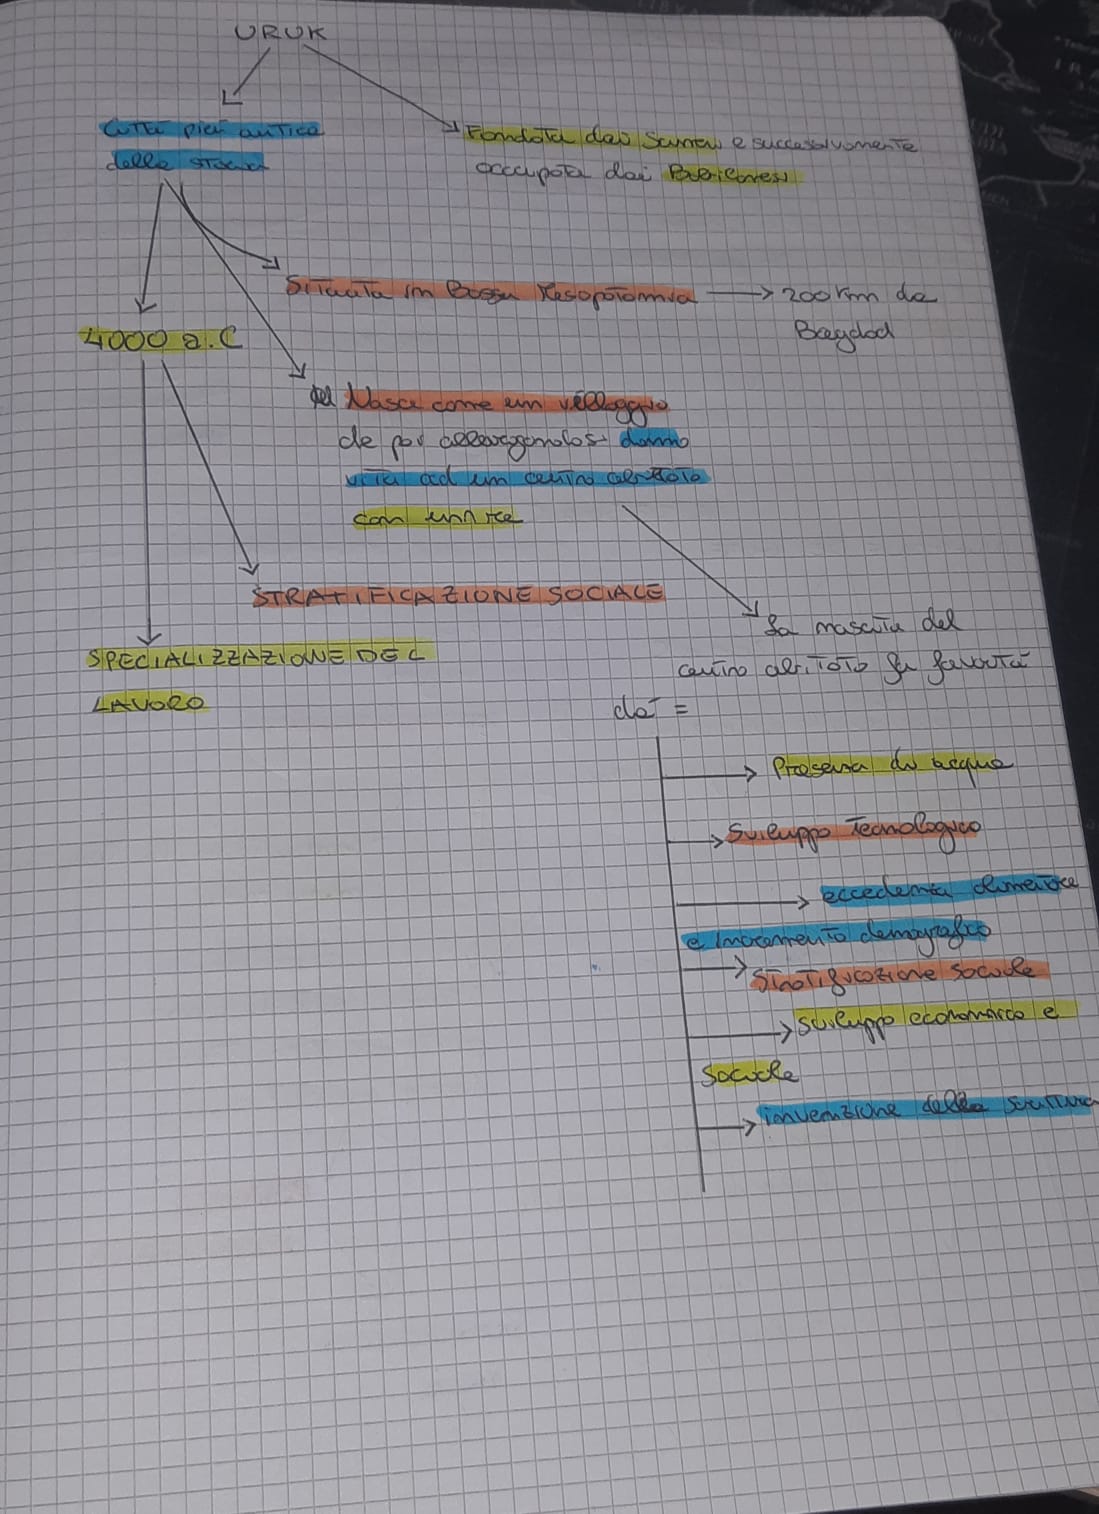 URUK
Città più antica
della storia
Fondata dai Sumeri e successivamente
occupata dai Babilonesi
Situata in Bassa Mesopotamia
200 km da
Bagdad
4000 a.C
Nasce come un villaggio
che poi allargandosi danno
vita ad un centro abitato
con unn re
STRATIFICAZIONE SOCIALE
SPECIALIZZAZIONE DEL
LAVORO
La nascita del
centro abitato fu favorita
da =
Presenza di acqua
Sviluppo Tecnologico
eccedenza alimentare
e incremento demografico
Stratificazione sociale
sviluppo economico e
sociale
invenzione della scrittura